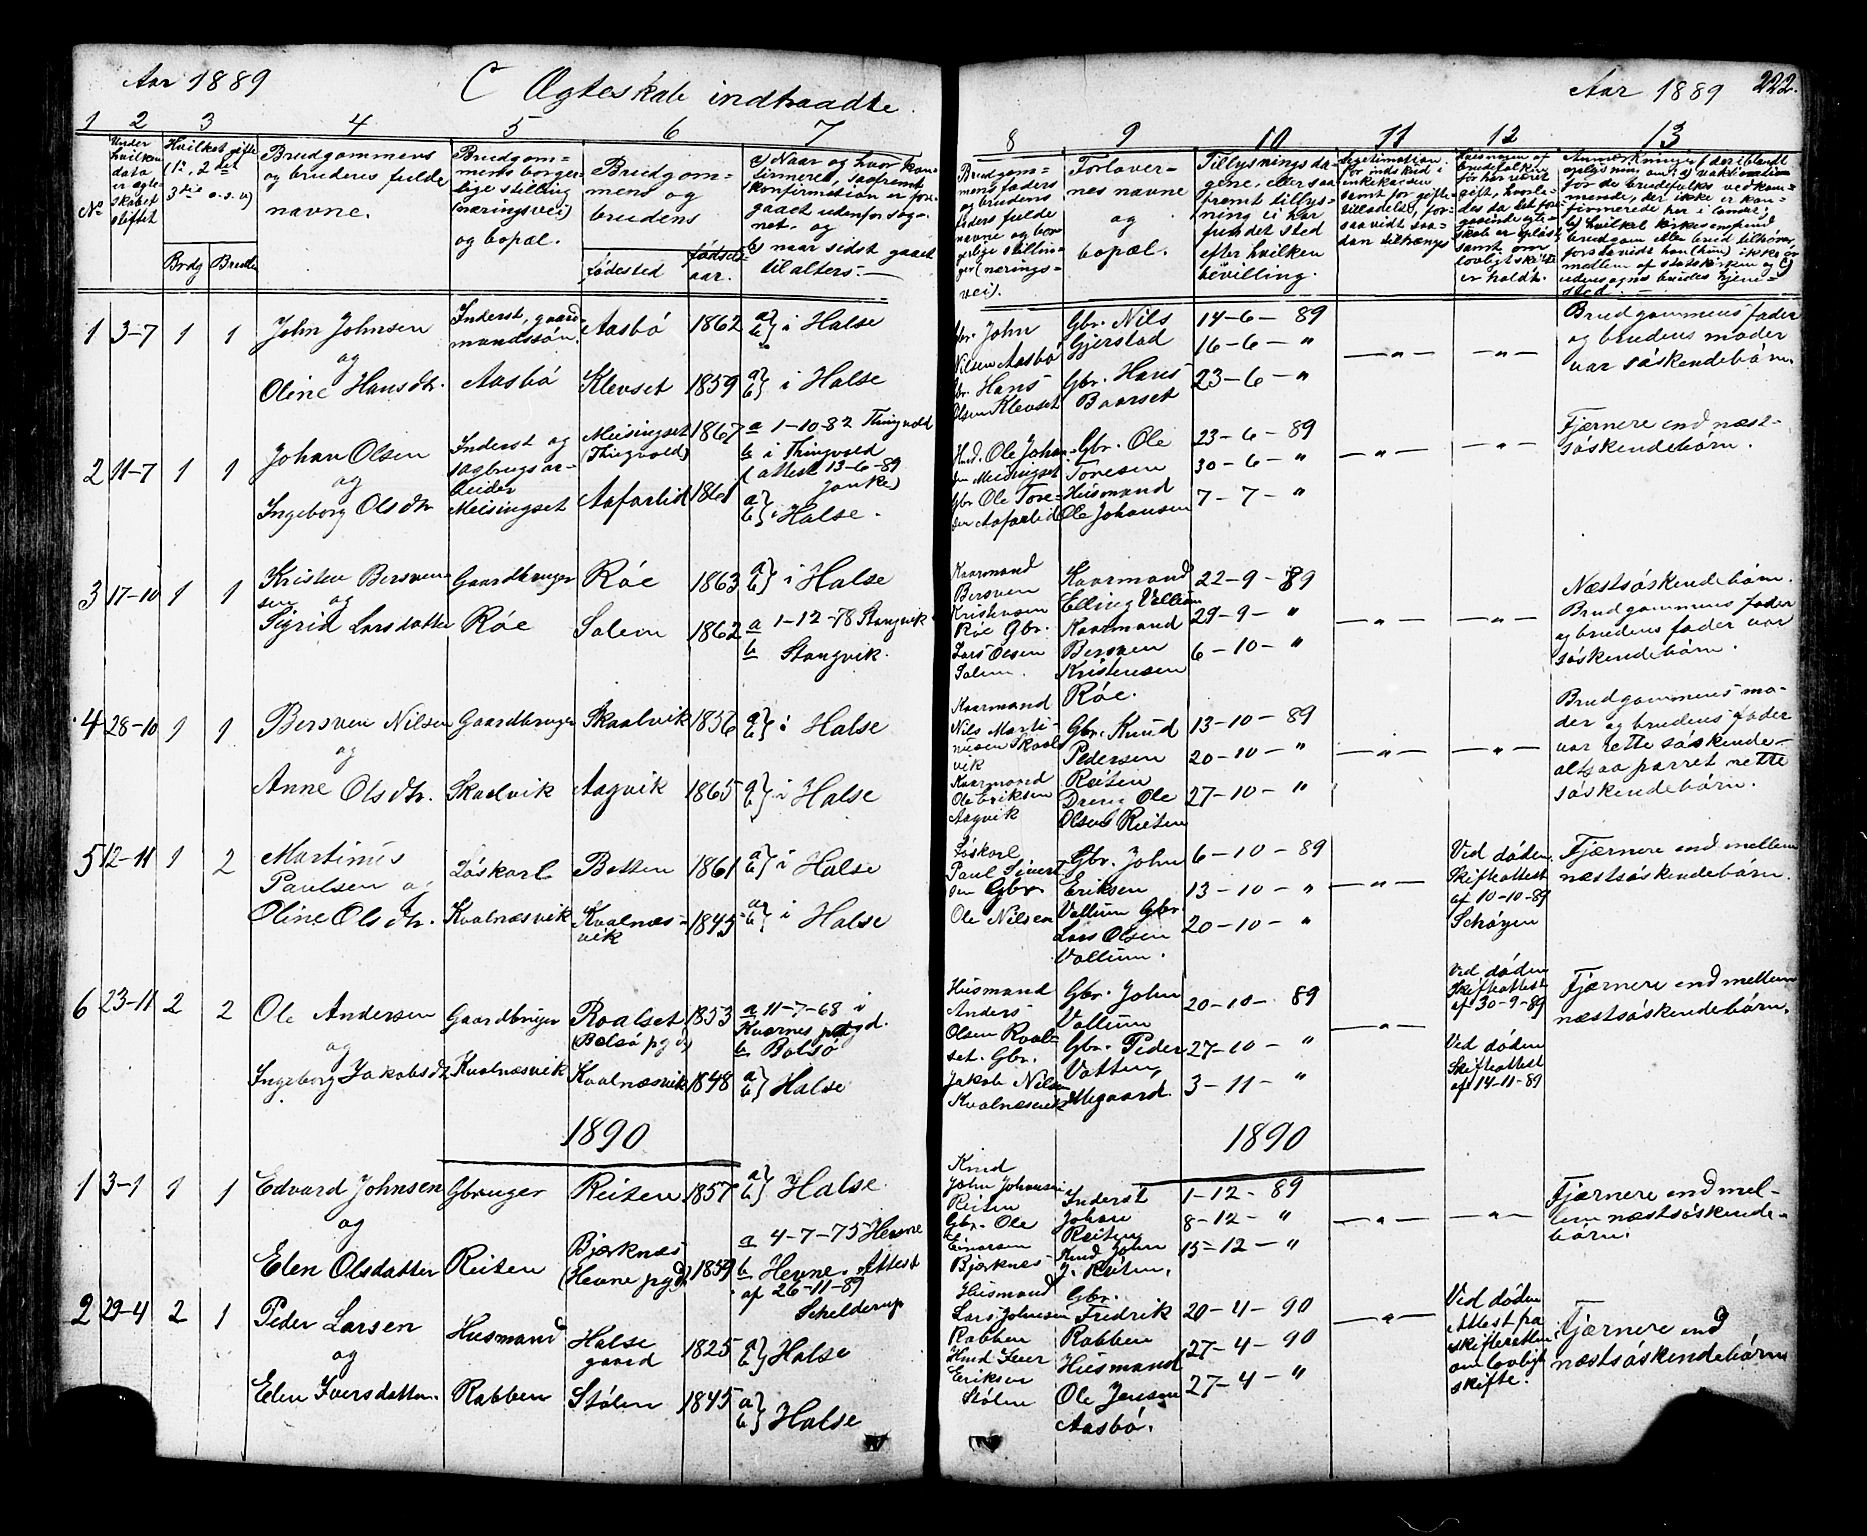 Aar 1889
C Ægteskab indtraadte.
Aar 1889
222.
1 2 3 4 5 6 7
8 9 10 11 12 13
No
Under hvilken data er ægteskabet stiftet
Hvilket gifte (1ste, 2det 3die o.s.v)
Brdg Bruden
Brudgommens og brudens fulde navne.
Brudgommens borgerlige stilling (næringsvei) og bopæl.
Brudgommens og brudens
fødested
fødselsaar.
a) Naar og hvor konfirmeret, saafremt konfirmation er foregaaet udenfor sognet. og
b) naar sidst gaaet til alters.
Brudgommens faders og brudens faders fulde navne og borgerlige stilling (næringsvei).
Forlovernes navne og bopæl.
Tillysningsdagene, eller saafremt tillysning ei har fundet sted efter hvilken bevilling.
1 3-7 1 1
John Johnsen
og
Oline Hansdtr.
Inderst, gaardmandssøn.
Aasbø
Aasbø 1862 a) b) i Halse
Klevset 1859 a) b) i Halse
Gbr. John Nilsen Aasbø
Gbr. Hans Olsen Klevset
Gbr. Nils Gjerstad
Gbr. Hans Baarset
14-6-89
16-6-"
23-6-"
—"— —"—
Brudgommens fader
og brudens moder
var søskendebørn.
2 11-7 1 1
Johan Olsen
og
Ingeborg Olsdtr
Inderst og sagbrugsarbeider
Meisingset
Meisingset (Thingvold) 1867
a 1-10-82 Thingvold
b i Thingvold
(attest 13-6-89
Aafarlid 1861 a) b) i Halse.
Husm. Ole Johansen Meisingset
Gbr Ole Toresen Aafarlid
Gbr. Ole Toresen
Husmand Ole Johansen
23-6-89
30-6-"
7-7-"
—"— —"—
Fjernere end næstsøskendebørn.
3 17-10 1 1
Kristen Bersvensen
og
Sigrid Larsdatter
Gaardbruger
Røe
Røe 1863 a) b) i Halse
Solem 1862 a 1-12-78 Stangvik
b Stangvik.
Kaarmand
Bersven
Kristensen
Røe Gbr.
Lars Olsen
Solem.
Kaarmand
Elling Vollum
Kaarmand
Bersven
Kristensen
Røe.
22-9-89
29-9-"
6-10-"
—"— —"—
Næstsøskendebørn.
Brudgommens fader
og brudens fader var
søskendebørn.
4 28-10 1 1
Bersven Nilsen
og
Anne Olsdtr.
Gaardbruger
Skaalvik
Skaalvik 1856 a) b) i Halse
Aagvik 1865 a) b) i Halse
Kaarmand
Nils Martinusen Skaalvik
Kaarmand
Ole Eriksen
Aagvik
Gbr. Knud
Pedersen
Reiten
Dreng Ole
Olsen Reiten
13-10-89
20-10-"
27-10-"
—"— —"—
Brudgommens moder
og brudens fader
var rette søskende—
altsaa parret rette
søskendebørn.
5 12-11 1 2
Martinus
Paulsen og
Oline Olsdtr.
Løskarl
Kvalnæsvik
Betten 1861 a) b) i Halse
Kvalnæsvik 1845 a) b) i Halse
Løskarl
Paul Sivertsen Gbr
Ole Nilsen
Gbr. John
Eriksen
Vollum Gbr
Lars Olsen
Vollum.
6-10-89
13-10-"
20-10-"
—"—
Ved døden.
Skifteattest
af 10-10-89
Schøyen
Fjærnere end mellem
næstsøskendebørn.
6 23-11 2 2
Ole Andersen
og
Ingeborg Jakobsdtr
Gaardbruger
Kvalnæsvik
Roalset (Bolsø pgd) 1853
a 11-7-68 i
Kværnes pgd.
b Bolsø
Kvalnæsvik 1848 a) b) Halse
Husmand
Anders
Olsen Roalset. Gbr.
Jakob Nilsen
Kvalnæsvik
Gbr. John
Vollum
Gbr. Peder
Vatten,
20-10-89
27-10-"
3-11-"
—"—
Ved døden
Skifteattest
af 30-9-89
Ved døden
Skifteattest
af 14-11-89
Fjærnere end mellem
næstsøskendebørn.
1890
1890
1 3-1 1 1
Edvard Johnsen
og
Elen Olsdatter
Gbruger
Reiten
Reiten 1857 a) b) Halse.
Bjørknæs (Hevne pgd) 1859
a 4-7-75 Hevne
b Hevne. Attest
af 26-11-89
Schelderup
John Johnsen
Reiten
Gbr. Ole
Einarsen
Bjørknes
Inderst
Johan
Reiten
John
J. Reiten.
1-12-89
8-12-"
15-12-"
—"— —"—
Fjærnere end mellem
næstsøskendebørn.
2 29-4 2 1
Peder Larsen
og
Elen Iversdatter
Husmand
Rabben
Halsegaard 1825 a) b) Halse
Stølen 1845 a) b) Halse
Husmand
Lars Johnsen
Rabben
Husmd Iver
Eriksen
Stølen
Gbr.
Fredrik
Rabben
Husmand
Ole Jensen
Aasbø.
20-4-90
27-4-90
27-4-"
—"—
Ved døden
Attest fra
skifteretten
om lovligt
skifte.
Fjærnere end
næstsøskendebørn